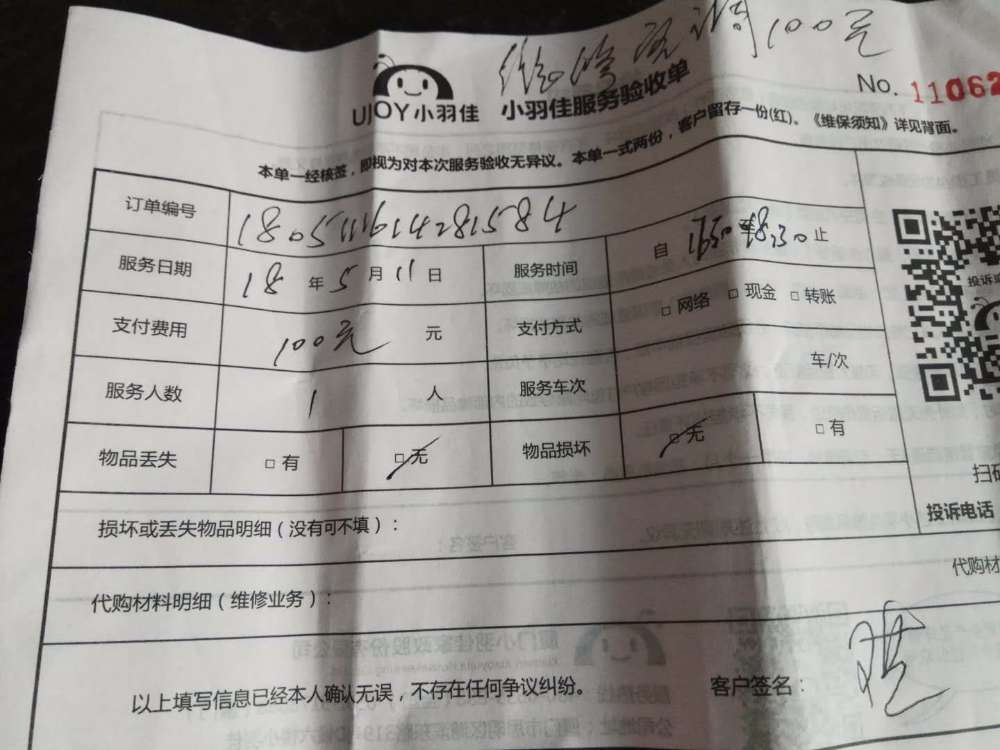 维修空调100元
UJOY小羽佳 小羽佳服务验收单
No. 11062
本单一经核签，即视为对本次服务验收无异议。本单一式两份，客户留存一份(红)。《维保须知》详见背面。
订单编号
服务日期 18 年 5 月 11 日 服务时间 自 1650 至 18:30 止
支付费用 100元 元 支付方式 □ 网络 □ 现金 □ 转账
服务人数 1 人 服务车次 车/次
物品丢失 □ 有 □ 无 物品损坏 □ 无 □ 有
损坏或丢失物品明细（没有可不填）：
扫码
投诉电话
代购材料明细（维修业务）：
代购材
以上填写信息已经本人确认无误，不存在任何争议纠纷。 客户签名：